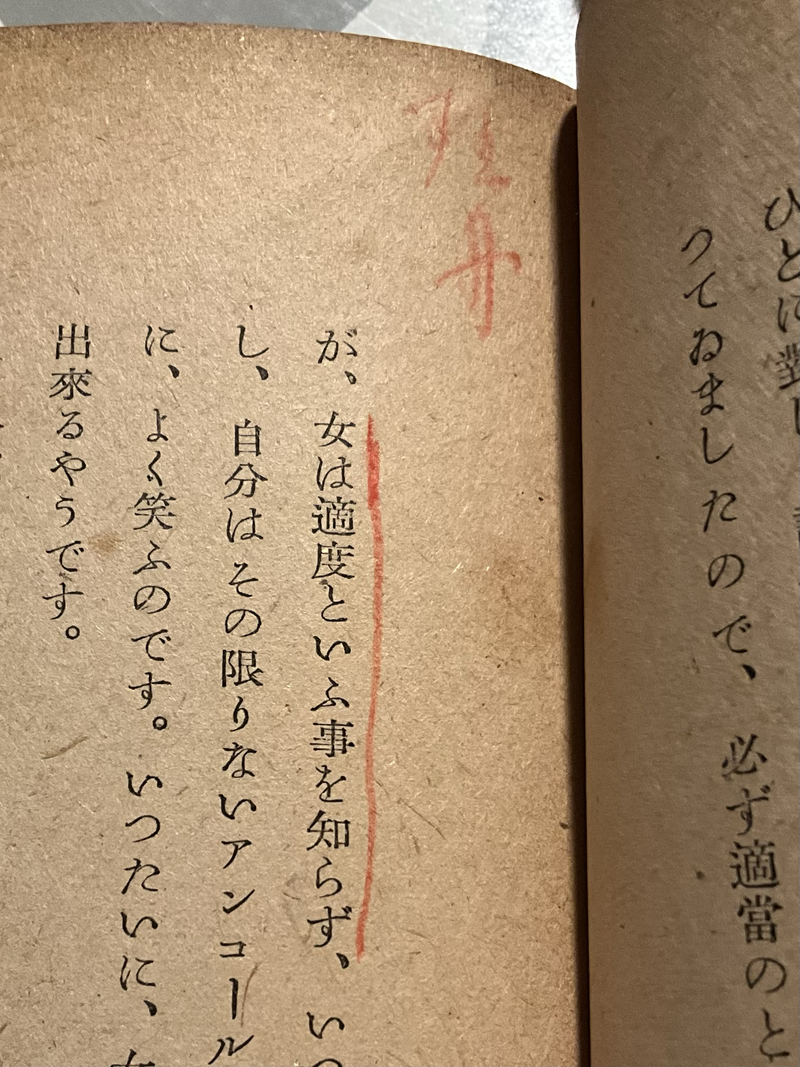 ひとに對し
つてゐましたので、必ず適當のと
が、女は適度といふ事を知らず、いつ
し、自分はその限りないアンコール
に、よく笑ふのです。いつたいに、女
出來るやうです。